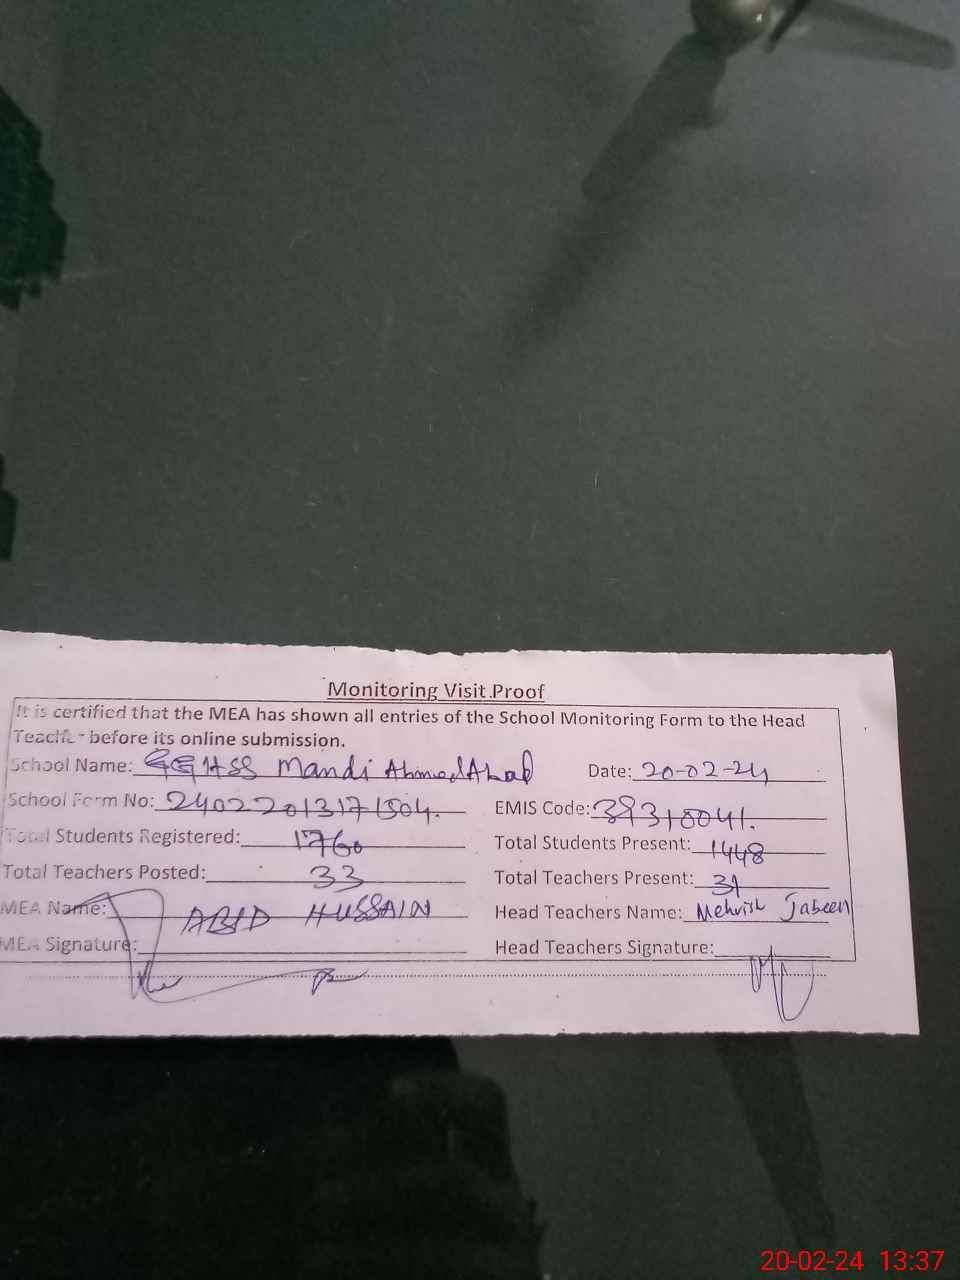 Monitoring Visit Proof
It is certified that the MEA has shown all entries of the School Monitoring Form to the Head
Teacher before its online submission.
School Name: GGHSS Mandi AhmedAbad Date: 20-02-24
School Form No: 24022013171504. EMIS Code: 39310041.
Total Students Registered: 1760 Total Students Present: 1448
Total Teachers Posted: 33 Total Teachers Present: 31
MEA Name: ABID HUSSAIN Head Teachers Name: Mehvish Jabeen
MEA Signature: Head Teachers Signature:
20-02-24 13:37